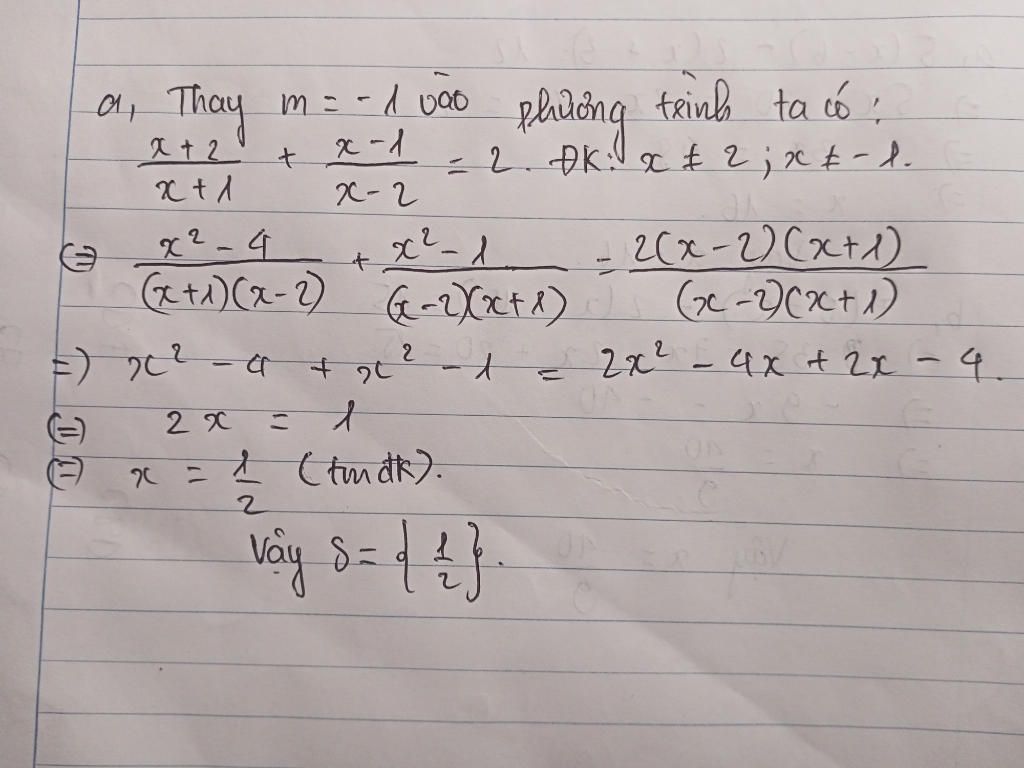 a, Thay m = -1 vào phương trình ta có:
\frac{x+2}{x+1} + \frac{x-1}{x-2} = 2. ĐK: x ≠ 2; x ≠ -1.
⇔ \frac{x² - 4}{(x+1)(x-2)} + \frac{x² - 1}{(x-2)(x+1)} = \frac{2(x-2)(x+1)}{(x-2)(x+1)}
=) x² - 4 + x² - 1 = 2x² - 4x + 2x - 4.
(=) 2x = 1
(=) x = \frac{1}{2} (tmđk).
Vậy S = {\frac{1}{2}}.